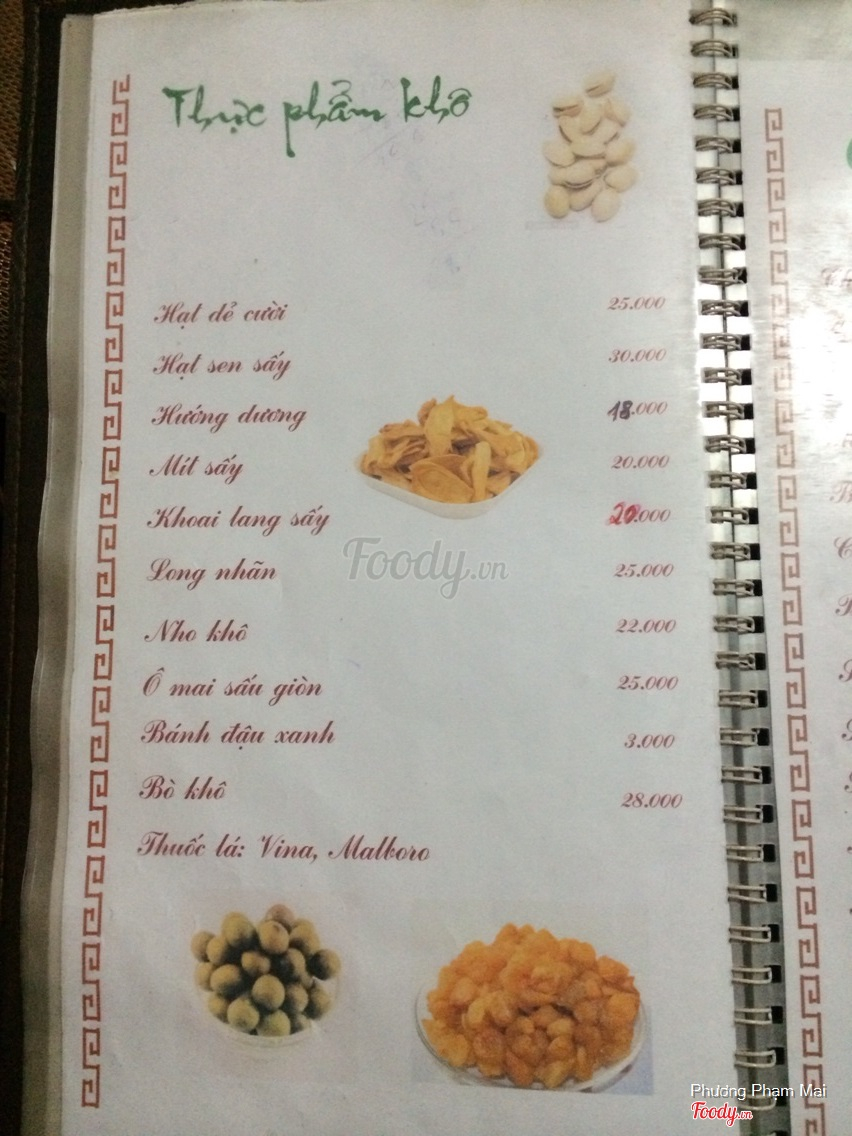 Thực phẩm khô
Hạt dẻ cười 25.000
Hạt sen sấy 30.000
Hướng dương 18.000
Mít sấy 20.000
Khoai lang sấy 20.000
Long nhãn 25.000
Nho khô 22.000
Ô mai sấu giòn 25.000
Bánh đậu xanh 3.000
Bò khô 28.000
Thuốc lá: Vina, Malboro
Foody.vn
Phương Phạm Mai
Foody.vn